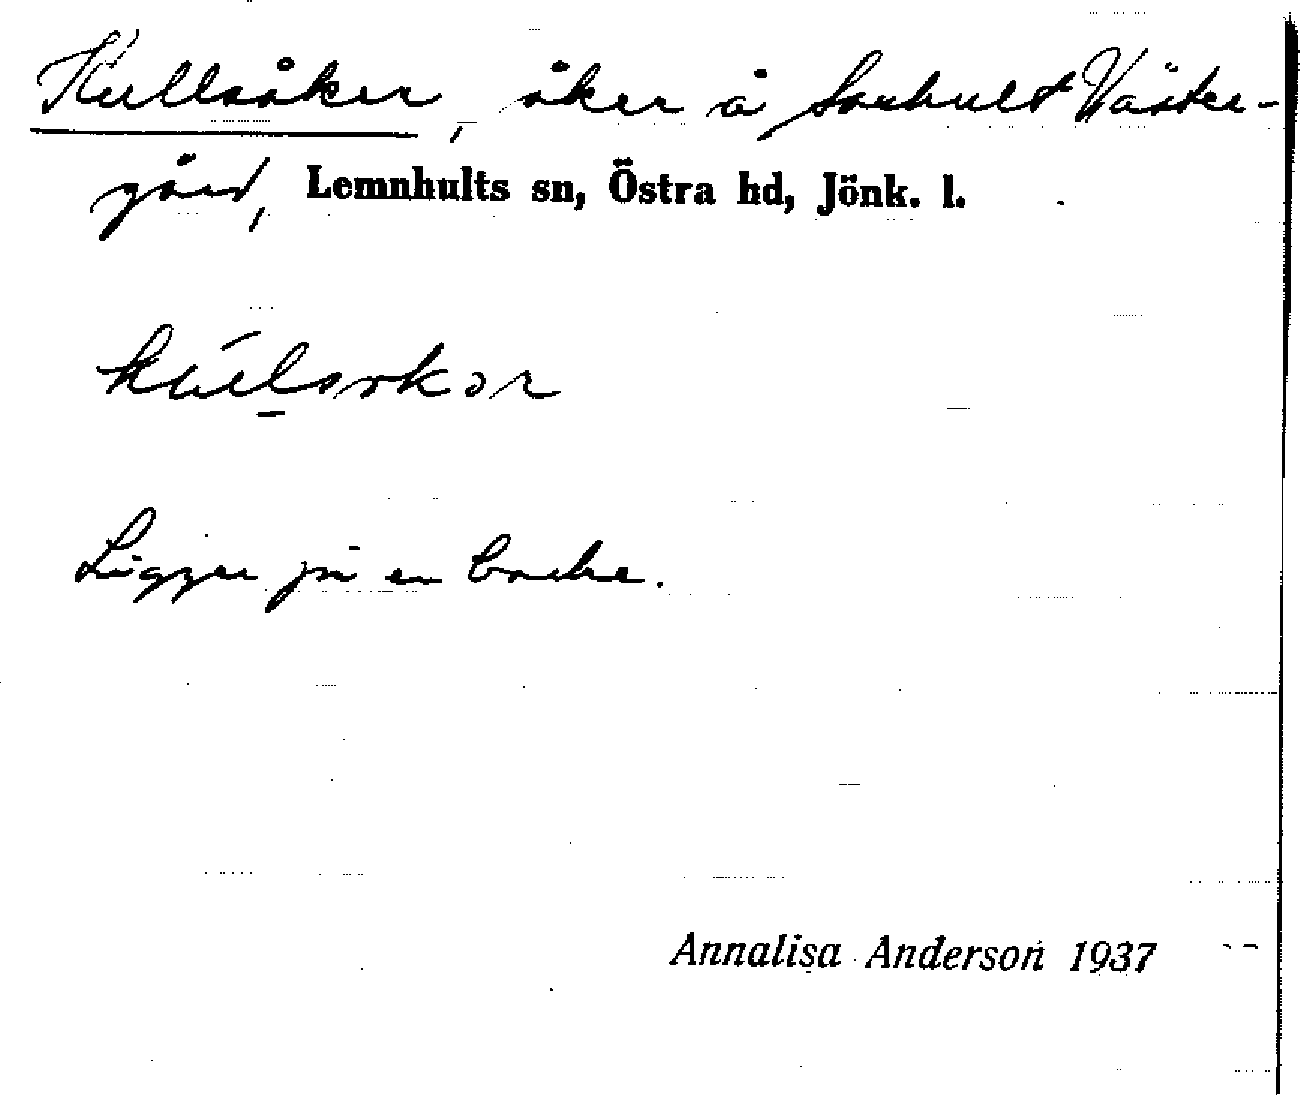 Kullsåker, åker å Sonhult Väster-
gård, Lemnhults sn, Östra hd, Jönk. l.
Ligger på en backe.
Annalisa Anderson 1937